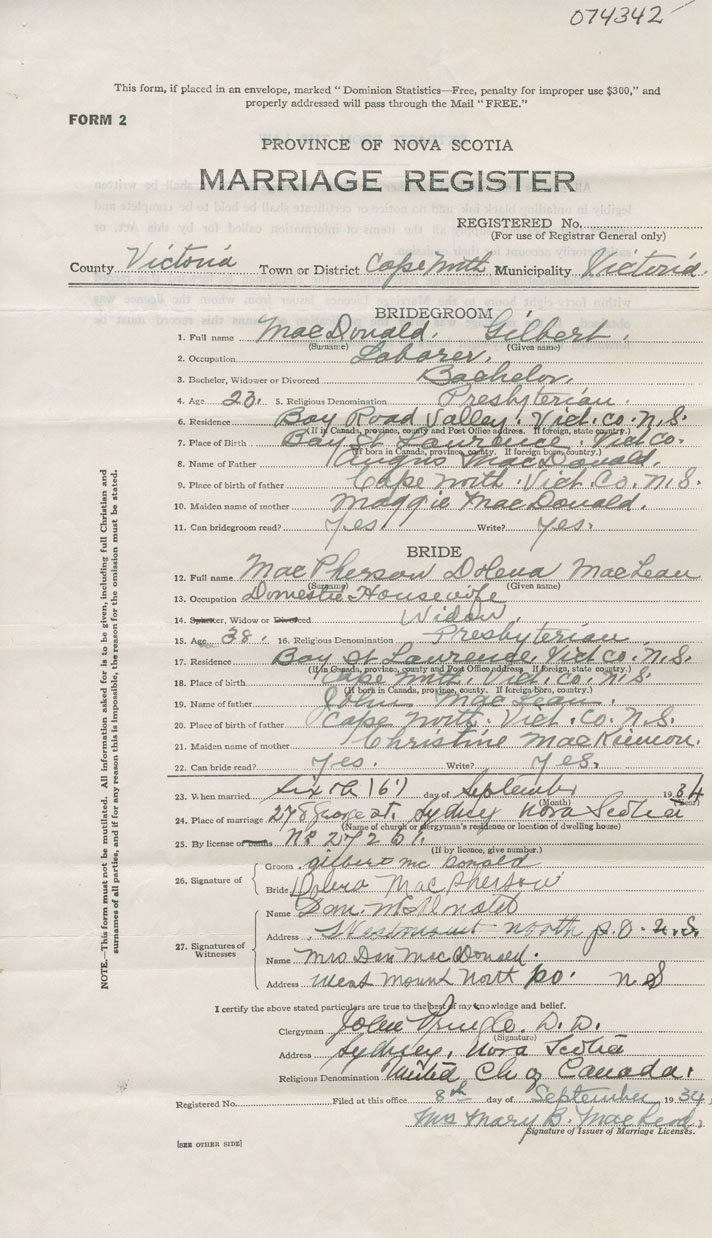 074342
This form, if placed in an envelope, marked "Dominion Statistics—Free, penalty for improper use $300," and
properly addressed will pass through the Mail "FREE."
FORM 2
PROVINCE OF NOVA SCOTIA
MARRIAGE REGISTER
REGISTERED No.
(For use of Registrar General only)
County Victoria Town or District Cape North Municipality Victoria.
BRIDEGROOM
1. Full name MacDonald. Gilbert.
(Surname) (Given name)
2. Occupation Laborer.
3. Bachelor, Widower or Divorced Bachelor.
4. Age 23. 5. Religious Denomination Presbyterian.
6. Residence Bay Road Valley. Vict. Co. N.S.
(If in Canada, province, county and Post Office address. If foreign, state country.)
7. Place of Birth Bay St Laurence. Vict Co.
(If born in Canada, province, county. If foreign born, country.)
8. Name of Father Angus MacDonald.
9. Place of birth of father Cape North. Vict. Co. N.S.
10. Maiden name of mother Maggie MacDonald.
11. Can bridegroom read? Yes Write? Yes.
BRIDE
12. Full name MacPherson Dolena MacLean
(Surname) (Given name)
13. Occupation Domestic Housewife
14. Spinster, Widow or Divorced Widow.
15. Age 38. 16. Religious Denomination Presbyterian
17. Residence Bay St Laurence Vict Co. N.S.
(If in Canada, province, county and Post Office address. If foreign, state country.)
18. Place of birth Cape North. Vict. Co. N.S.
(If born in Canada, province, county. If foreign-born, country.)
19. Name of father John MacLean.
20. Place of birth of father Cape North. Vict. Co. N.S.
21. Maiden name of mother Christine MacKinnon.
22. Can bride read? Yes. Write? Yes.
23. When married Sixth (6) day of September 1934
(Month) (Year)
24. Place of marriage 278 George st. Sydney Nova Scotia
(Name of church or clergyman's residence or location of dwelling house)
25. By license or banns No 27261.
(If by licence, give number.)
26. Signature of
Groom Gilbert Mc Donald
Bride Dolena MacPherson
27. Signatures of Witnesses
Name Dan.
Address Westmount North P.O. N.S.
Name Mrs Dan MacDonald.
Address West Mount North Po. N S
I certify the above stated particulars are true to the best of my knowledge and belief.
Clergyman John Pringle. D.D.
(Signature)
Address Sydney, Nova Scotia
Religious Denomination United Ch of Canada.
Registered No. Filed at this office 8th day of September 1934
Mrs Mary B. MacLeod.
Signature of Issuer of Marriage Licenses.
[SEE OTHER SIDE]
NOTE.—This form must not be mutilated. All information asked for is to be given, including full Christian and
surnames of all parties, and if for any reason this is impossible, the reason for the omission must be stated.